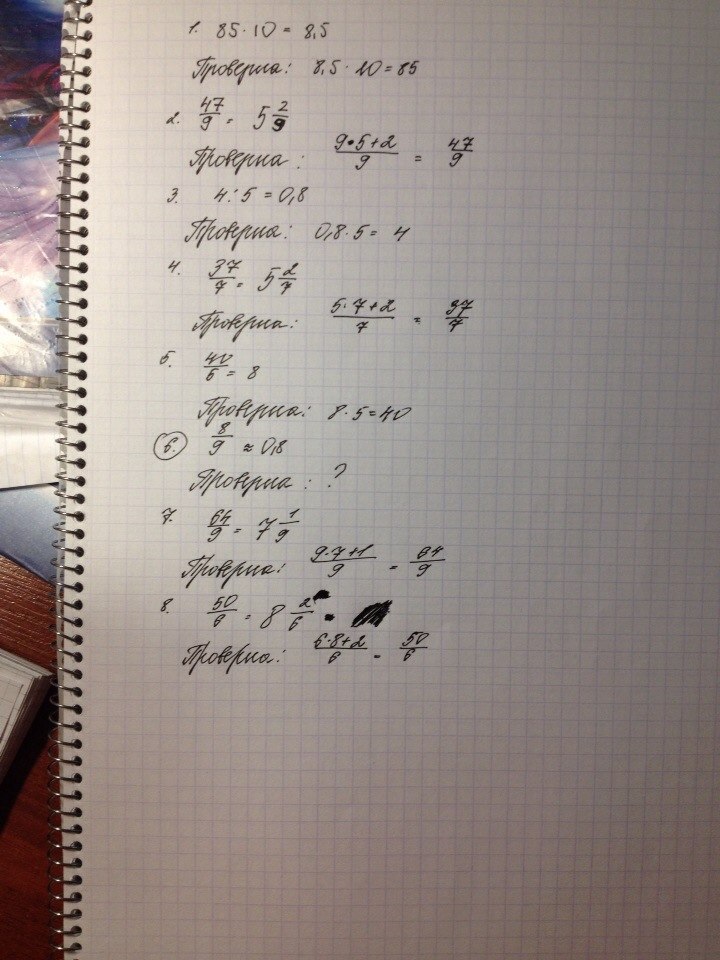 1. 85 · 10 = 8,5
Проверка: 8,5 · 10 = 85
2. 47/9 = 5 2/9
Проверка: (9·5+2)/9 = 47/9
3. 4 : 5 = 0,8
Проверка: 0,8 · 5 = 4
4. 37/7 = 5 2/7
Проверка: (5·7+2)/7 = 37/7
5. 40/5 = 8
Проверка: 8 · 5 = 40
6. 8/9 ≈ 0,8
Проверка: ?
7. 64/9 = 7 1/9
Проверка: (9·7+1)/9 = 64/9
8. 50/6 = 8 2/6
Проверка: (6·8+2)/6 = 50/6